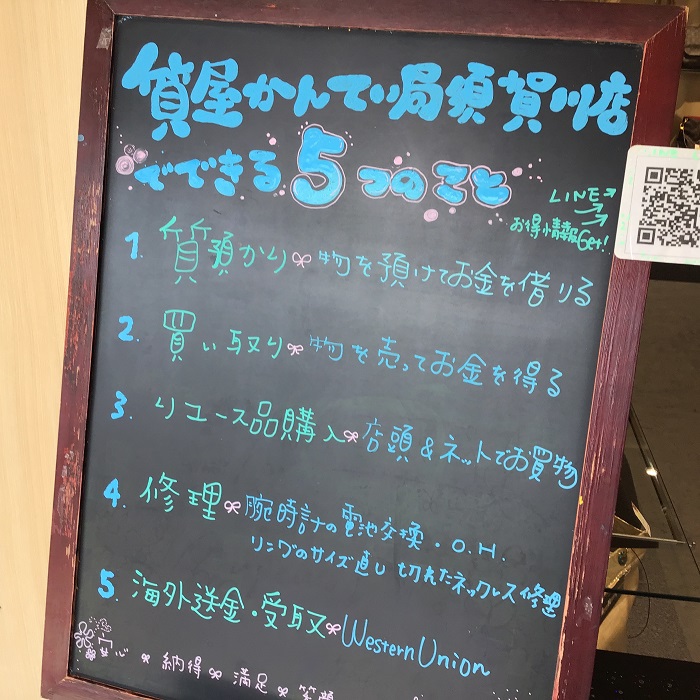 質屋かんてい局須賀川店
でできる5つのこと
LINE→
お得情報Get!
1. 質預かり 物を預けてお金を借りる
2. 買い取り 物を売ってお金を得る
3. リユース品購入 店頭&ネットでお買物
4. 修理 腕時計の電池交換・O.H.
リングのサイズ直し 切れたネックレス修理
5. 海外送金・受取 Western Union
安心 納得 満足 笑顔